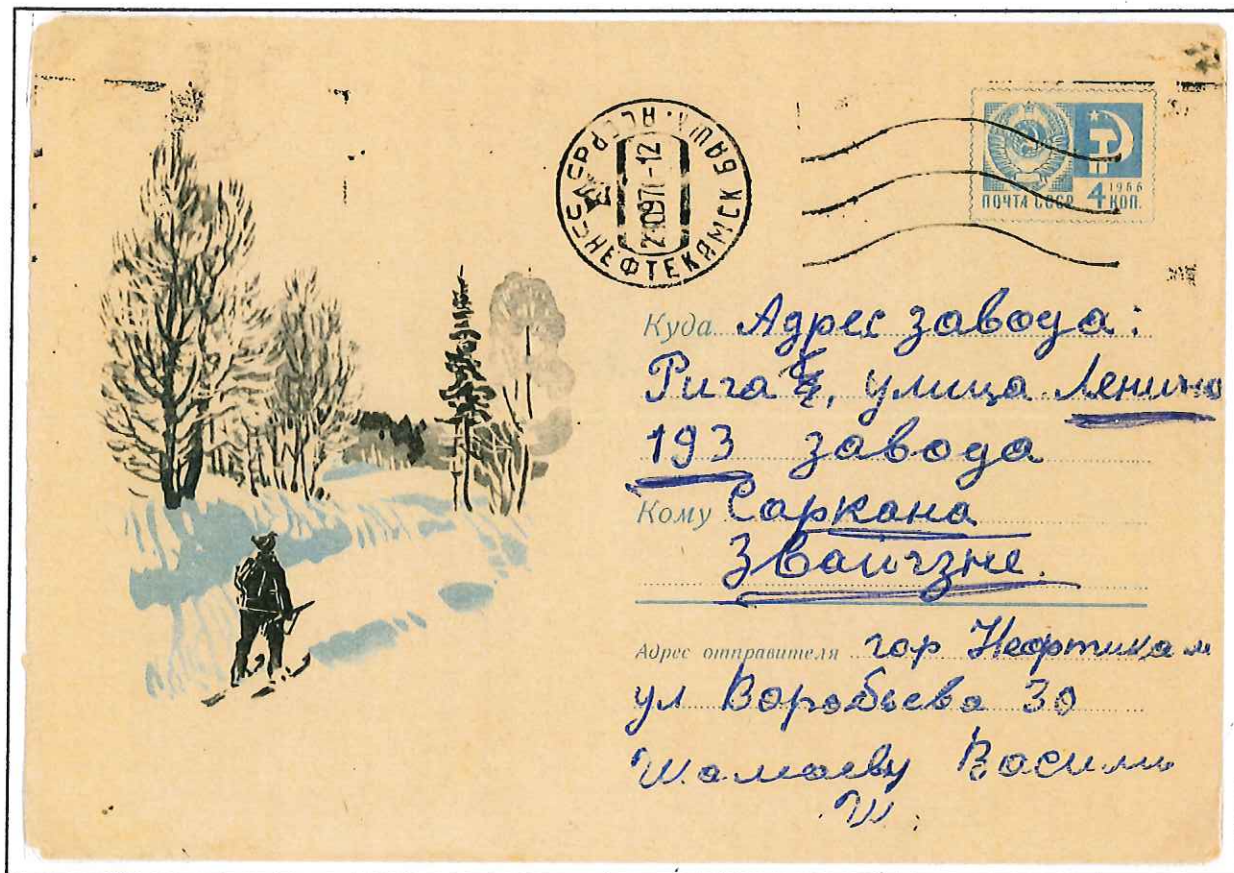 СССР НЕФТЕКАМСК БАШК. АССР
1966
ПОЧТА СССР 4 КОП.
Куда Адрес завода:
Рига, улица Ленина
193 завода
Кому Саркана
Звайгзне.
Адрес отправителя гор Нефтикам
ул Воробьева 30
Шамаеву Васили
Ш.